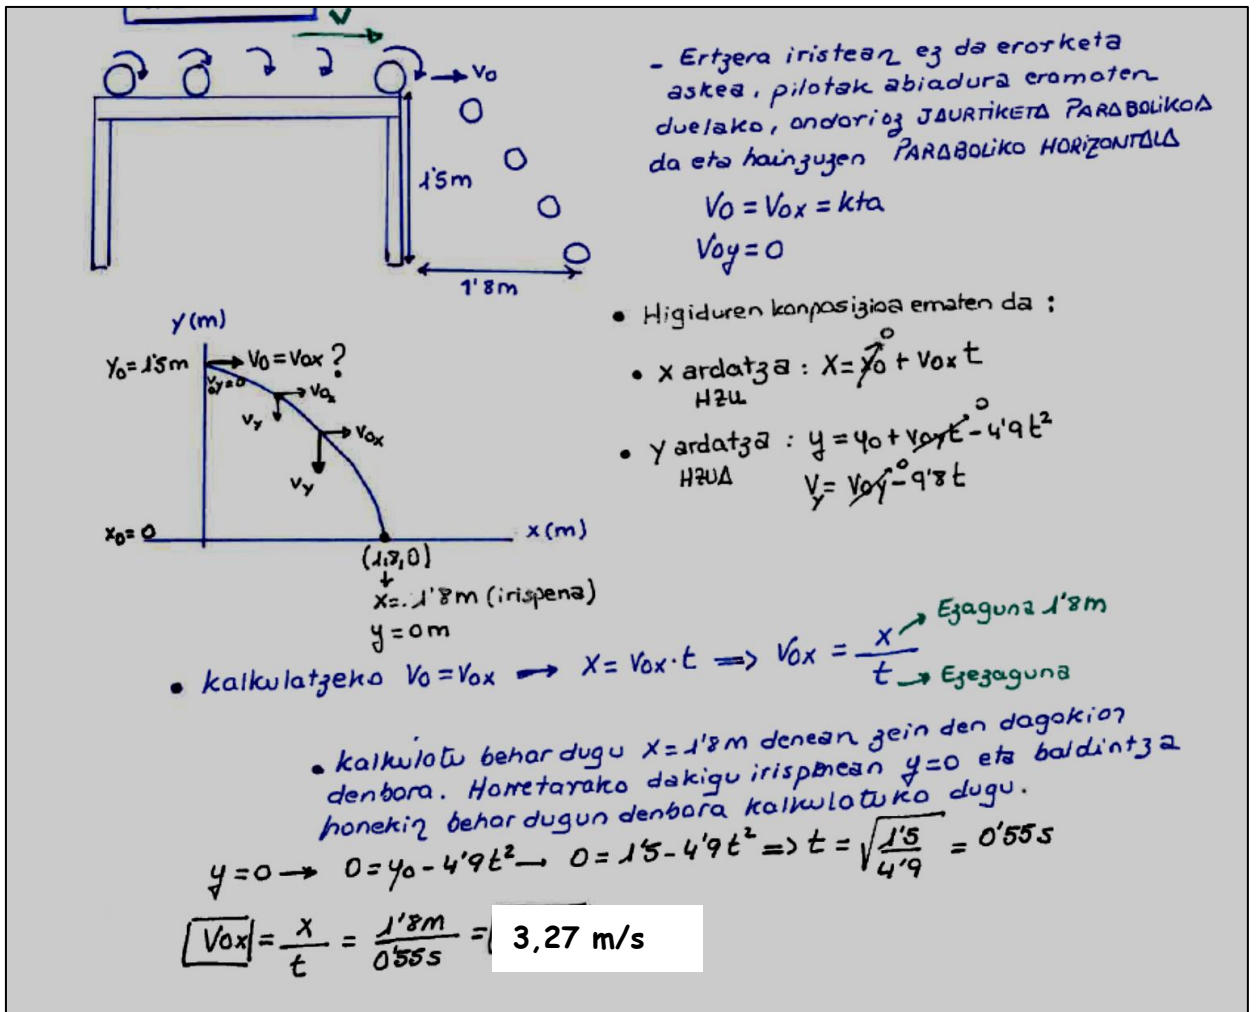 V
V0
1'5m
1'8m
- Ertzera iristean ez da erorketa
askea, pilotak abiadura eramaten
duelako, ondorioz JAURTIKETA PARABOLIKOA
da eta hain zuzen PARABOLIKO HORIZONTALA
V0 = V0x = kta
V0y = 0
y (m)
Y0 = 1'5m
V0 = V0x ?
V0y = 0
V0x
Vy
V0x
Vy
X0 = 0
x (m)
(1,8,0)
x = 1'8m (irispena)
y = 0m
• Higiduren konposizioa ematen da :
• X ardatza : X = X0 + V0x t
0
HZU
• Y ardatza : y = y0 + V0y t - 4'9t²
0
HZUA
Vy = V0y - 9'8t
0
• kalkulatzeko V0 = V0x → X = V0x · t ⇒ V0x = x / t
Ezaguna 1'8m
Ezezaguna
• kalkulatu behar dugu X = 1'8m denean zein den dagokion
denbora. Horretarako dakigu irispenean y=0 eta baldintza
honekin behar dugun denbora kalkulatuko dugu.
y = 0 → 0 = y0 - 4'9t² → 0 = 1'5 - 4'9t² ⇒ t = √(1'5 / 4'9) = 0'55s
V0x = x / t = 1'8m / 0'55s = 3,27 m/s